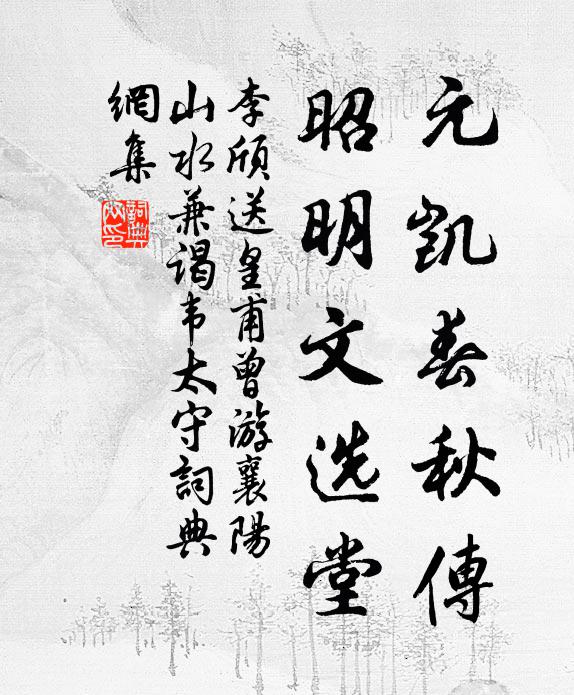 元凯春秋傳
昭明文选堂
李颀送皇甫曾游襄陽
山水兼谒韦太守詞典
網集
詞典網印